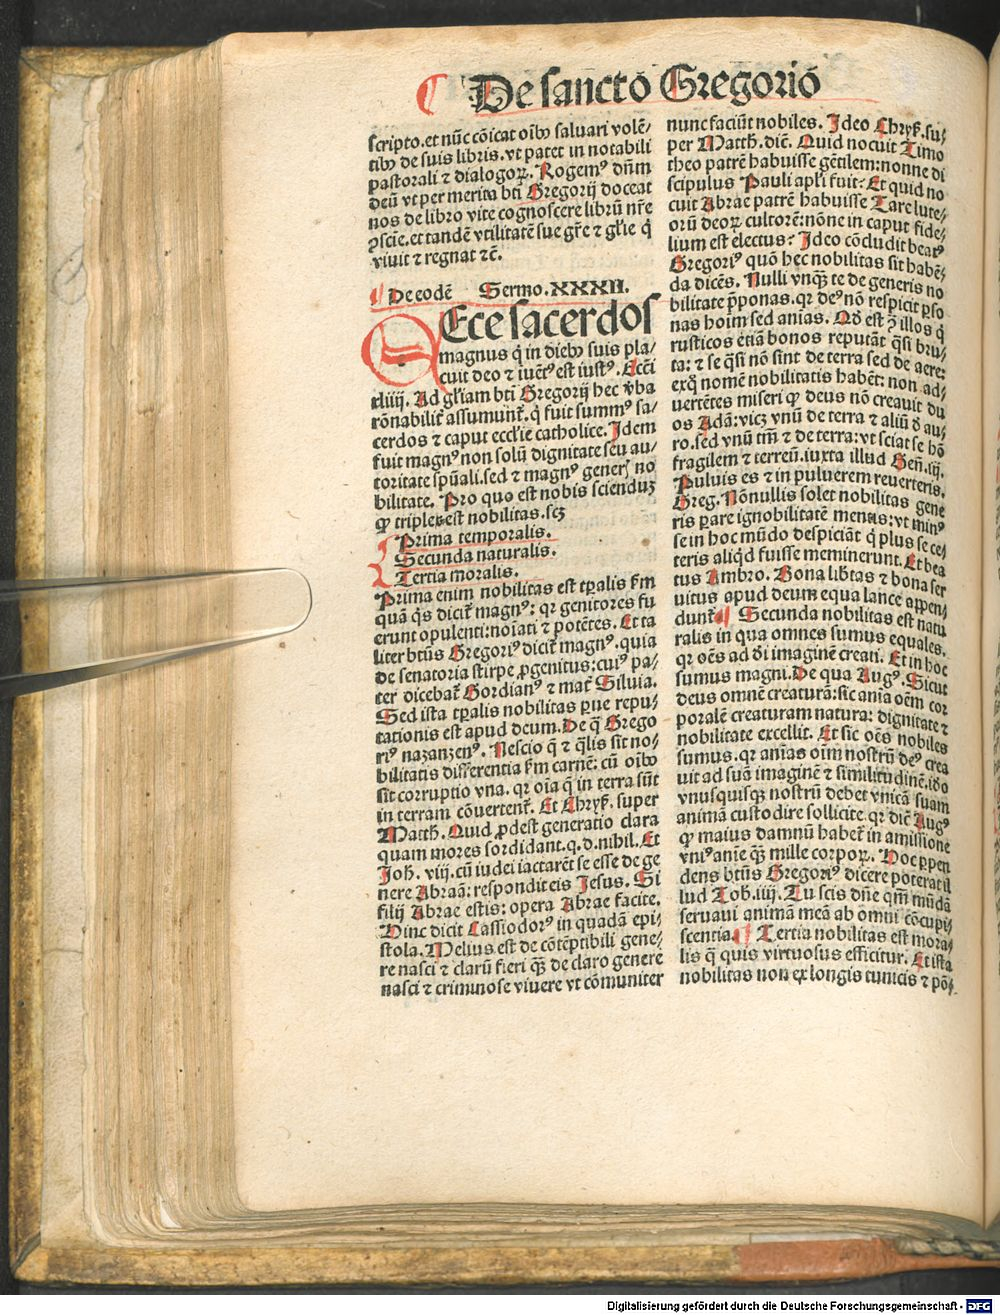 De sancto Gregorio
scripto.et nūc cōicat oībꝰ saluari volē⸗
tibꝰ de suis libris.vt patet in notabili
pastorali ⁊ dialogoꝝ. Rogemꝰ dn̄m
deū vt per merita bt̄i Gregorij doceat
nos de libro vite cognoscere librū nr̄e
ꝯscīe.et tandē vtilitatē sue gr̄e ⁊ gl̄ie q̇
viuit ⁊ regnat ⁊c̄.
De eodē Sermo.XXXII.
ECce sacerdos
magnus q̇ in diebꝰ suis pla⸗
cuit deo ⁊ iuētꝰ est iustꝰ. Ecc̄i
xliiij. Ad gl̄iam bt̄i Gregorij hec v̓ba
rōnabilit̓ assumunt̓. q̇ fuit summꝰ sa⸗
cerdos ⁊ caput eccl̄ie catholice. Idem
fuit magnꝰ non solū dignitate seu au⸗
toritate sp̄uali.sed ⁊ magnꝰ generꝭ no
bilitate. Pro quo est nobis scienduꝫ
ꝙ triplex est nobilitas.scꝫ
Prima temporalis.
Secunda naturalis.
Tertia moralis.
Prima enim nobilitas est tp̄alis s̄m
quā q̇s dicit̓ magnꝰ: qꝛ genitores fu
erunt opulenti:noīati ⁊ potētes. Et ta
liter bt̄us Gregoriꝰ dicit̓ magnꝰ.quia
de senatoria stirpe ꝓgenitus:cuiꝰ pa⸗
ter dicebat̓ Gordianꝰ ⁊ mat̓ Siluia.
Sed ista tp̄alis nobilitas ꝑue repu⸗
tationis est apud deum.De q̄ Grego
riꝰ nazanzenꝰ. Nescio q̄ ⁊ q̄lis sit no⸗
bilitatis differentia s̄m carnē: cū oībꝰ
sit corruptio vna. qꝛ oīa q̄ in terra sūt
in terram cōuertent̓. Et Chrys̓. super
Matth. Quid ꝓdest generatio clara
quam mores sordidant.q.d.nihil. Et
Joh̄. viij. cū iudei iactarēt se esse de ge
nere Abraā: respondit eis Jesus. Si
filij Abrae estis: opera Abrae facite.
Hinc dicit Cassiodorꝰ in quadā epi⸗
stola. Melius est de cōtēptibili gene⸗
re nasci ⁊ clarū fieri qꝫ̄ de claro genere
nasci ⁊ criminose viuere vt cōmuniter
nunc faciūt nobiles. Ideo Chrys̓.su⸗
per Matth. diē. Quid nocuit Timo
theo patrē habuisse gētilem:nonne di
scipulus Pauli apl̄i fuit? Et quid no
cuit Abrae patrē habuisse Tare lute⸗
orū deoꝝ cultorē:nōne in caput fide⸗
lium est electus? Ideo cōcludit beatꝰ
Gregoriꝰ quō hec nobilitas sit habē⸗
da dicēs. Nulli vnqꝫ̄ te de generis no
bilitate p̄ponas.qꝛ deꝰ nō respicit ꝑso
nas hoīm sed anīas. Qd̓ est ꝯ̄ illos q̇
rusticos etiā bonos reputāt q̄si bru⸗
ta: ⁊ se q̄si nō sint de terra sed de aere:
exq̇ nomē nobilitatis habēt: non ad⸗
uertētes miseri ꝙ deus nō creauit du
os Adā:vicꝫ vnū de terra ⁊ aliū d̓ au⸗
ro.sed vnū tm̄ ⁊ de terra:vt sciat se hō
fragilem ⁊ terreū.iuxta illud Gen̄.iij.
Puluis es ⁊ in puluerem reuerteris.
Greg. Nōnullis solet nobilitas gene
ris ꝑare ignobilitatē mentis:vt minꝰ
se in hoc mūdo despiciāt q̇ plus se ce⸗
teris aliqd̓ fuisse meminerunt. Et bea
tus Ambro. Bona lib̓tas ⁊ bona ser
uitus apud deum equa lance appen⸗
dunt̓. Secunda nobilitas est natu
ralis in qua omnes sumus equales.
qꝛ oēs ad d̓i imaginē creati. Et in hoc
sumus magni.De qua Augꝰ. Sicut
deus omnē creaturā:sic anīa oēm cor
poralē creaturam natura: dignitate ⁊
nobilitate excellit. Et sic oēs nobiles
sumus.qꝛ anīas oīm nostrū deꝰ crea
uit ad suā imaginē ⁊ similitudinē.iō̄o
vnusquisqꝫ nostrū debet vnicā suam
animā custodire sollicite.qꝛ diē Augꝰ
ꝙ maius damnū habet̓ in amissione
vniꝰ anīe qꝫ̄ mille corpoꝝ. Hoc ꝑpen
dens bt̄us Gregoriꝰ dicere poterat il
lud Tob.iiij. Tu scis dn̄e qm̄ mūdā
seruaui animā meā ab omni cōcupi⸗
scentia. Tertia nobilitas est mora⸗
lis q̄ quis virtuosus efficitur. Et ista
nobilitas non ex longis tunicis ⁊ pō⸗
Digitalisierung gefördert durch die Deutsche Forschungsgemeinschaft - DFG